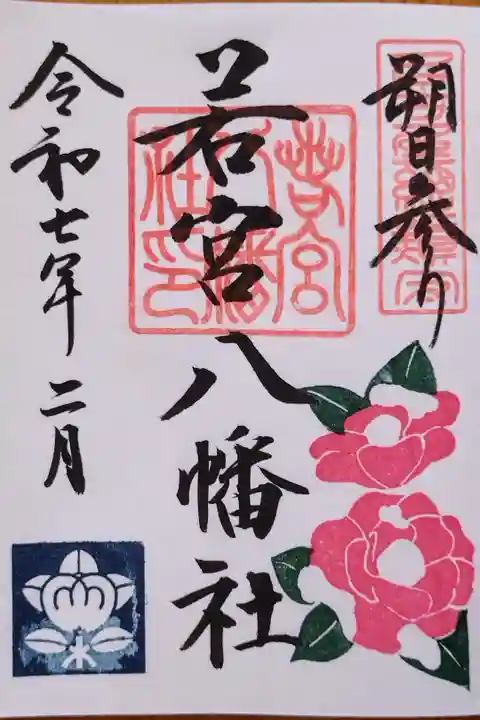 朔日参り
若宮八幡社
若宮八幡社印
令和七年二月